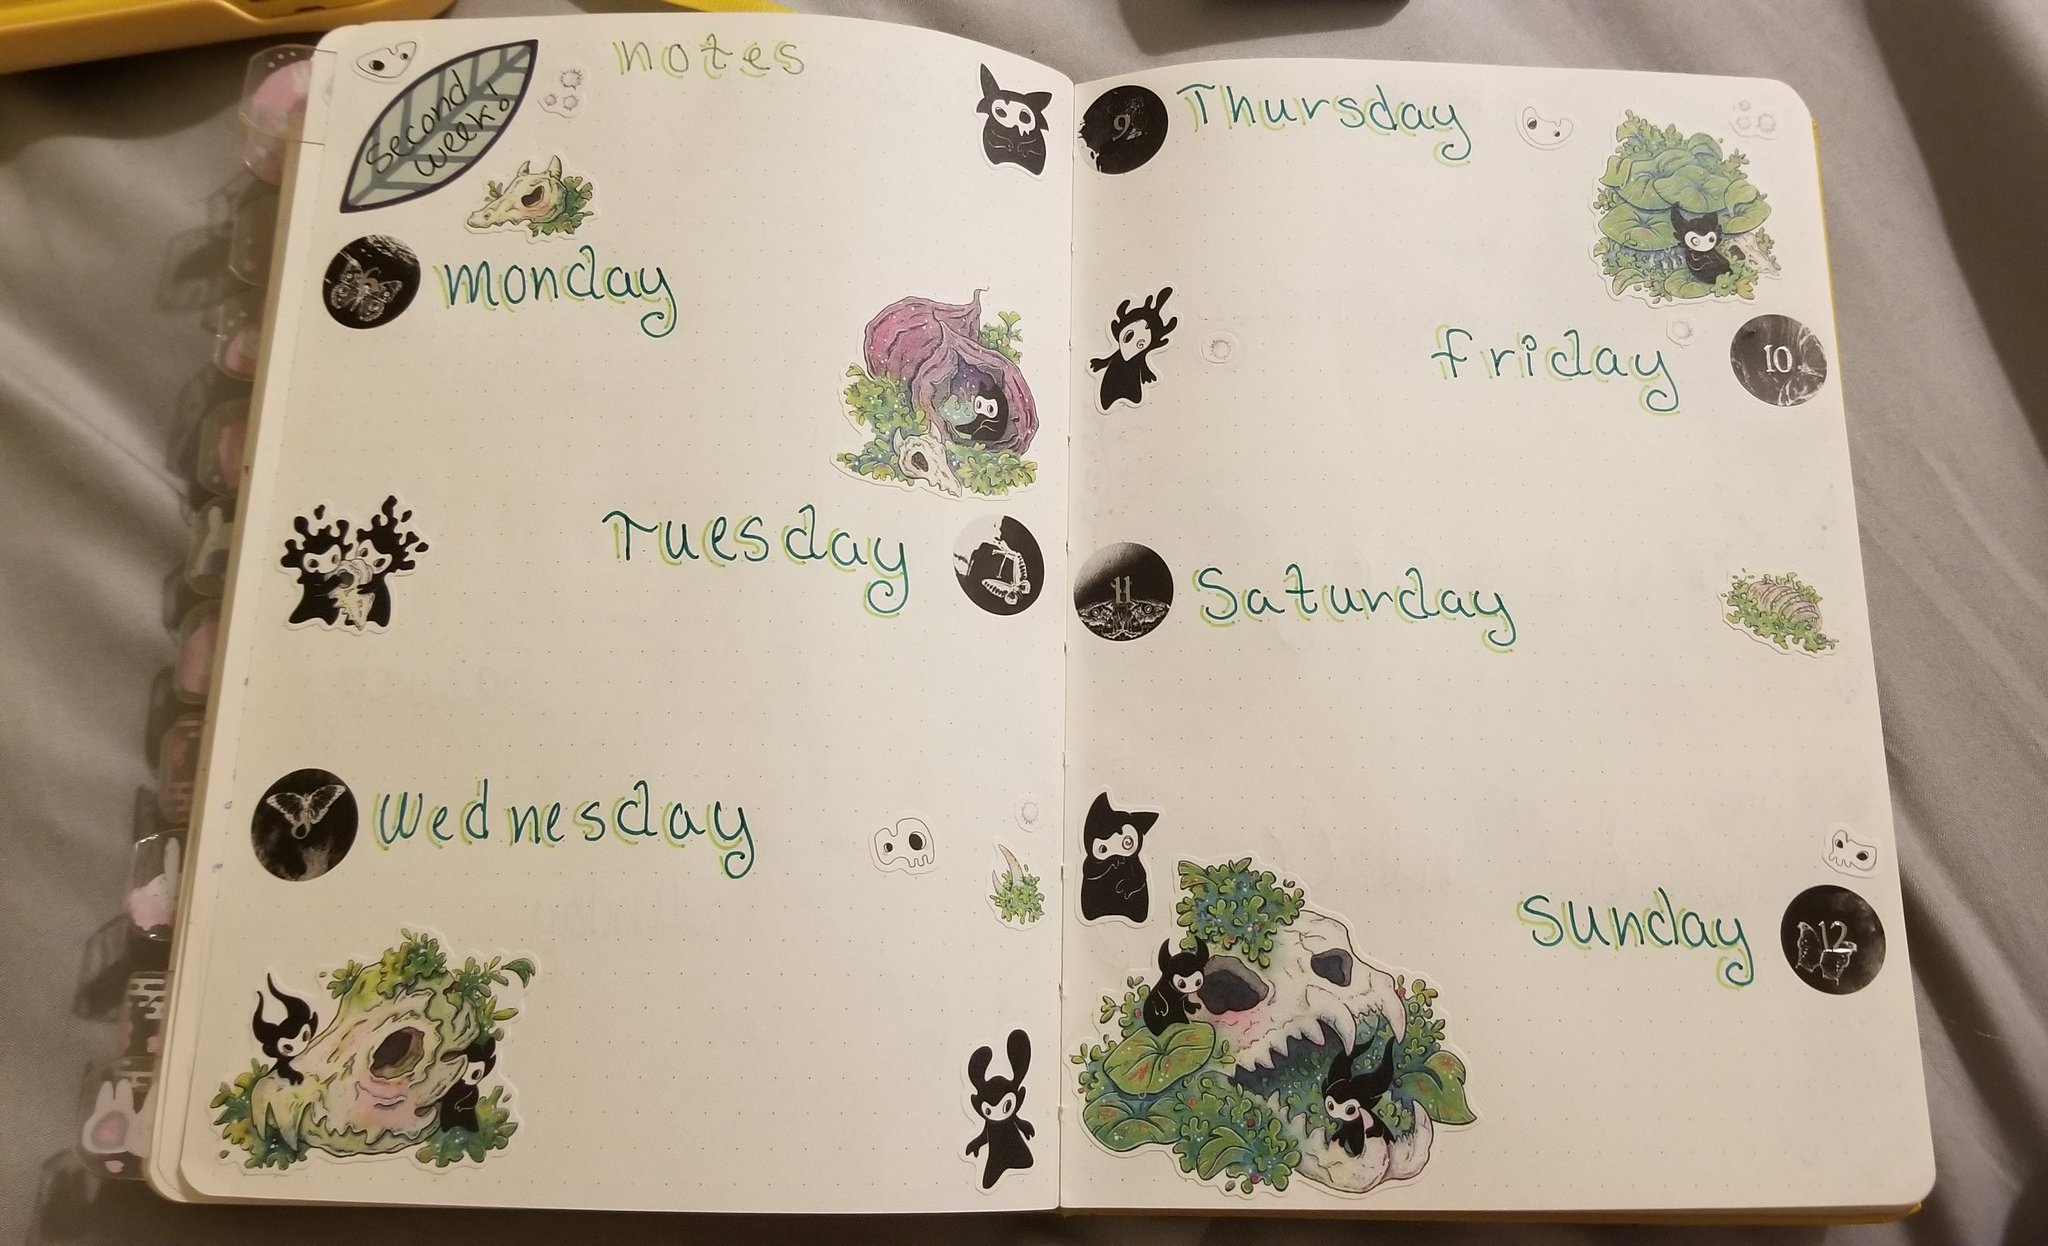 Second
week!
notes
monday
Tuesday
Wednesday
9
Thursday
friday
10
11
Saturday
Sunday
12